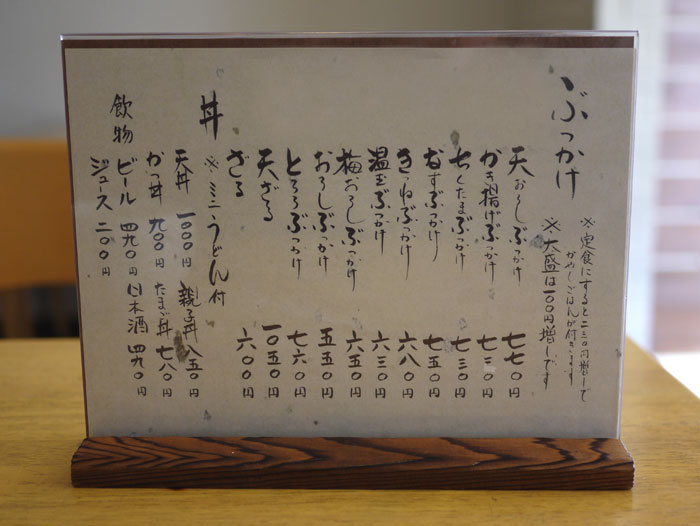 ぶっかけ
※定食にすると二三〇円増しで
かやくごはんが付きます
※大盛は一〇〇円増しです
天おろしぶっかけ 七七〇円
かき揚げぶっかけ 七三〇円
ちくたまぶっかけ 七三〇円
なすぶっかけ 七五〇円
きつねぶっかけ 六八〇円
温玉ぶっかけ 六三〇円
梅おろしぶっかけ 六五〇円
おろしぶっかけ 五五〇円
とろろぶっかけ 七六〇円
天ざる 一〇五〇円
ざる 六〇〇円
丼
※ミニうどん付
天丼 一〇〇〇円 親子丼 八五〇円
かつ丼 九〇〇円 たまご丼 七八〇円
飲物
ビール 四九〇円 日本酒 四九〇円
ジュース 二〇〇円